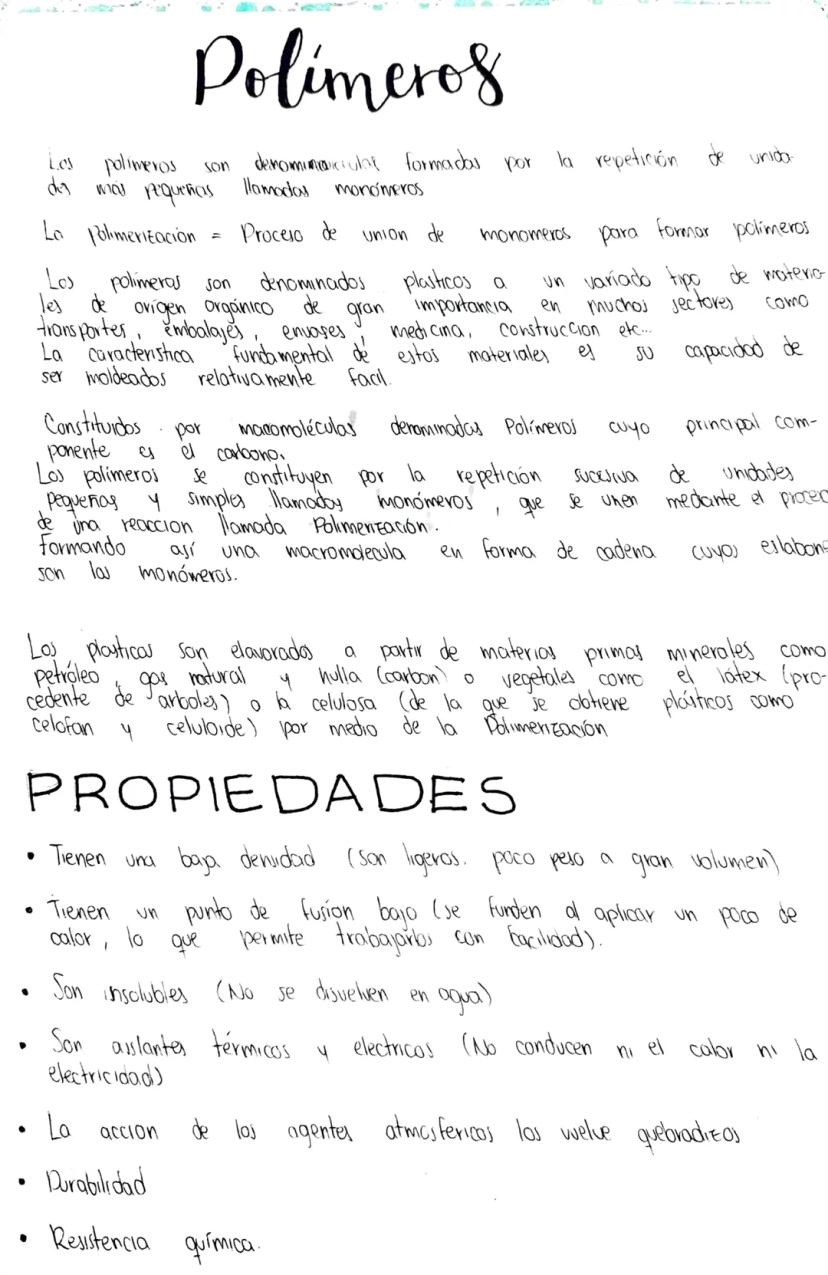 Polímeros
Los polimeros son formadas por la repetición de unida-
des más pequeñas llamadas monómeros
La Polimerización = Proceso de union de monomeros para formar polímeros
Los polimeros son denominados plasticos a un variado tipo de materia-
les de orígen orgánico de gran importancia en muchos sectores como
transportes, embalajes, envases, medicina, construccion etc...
La caracteristica fundamental de estos materiales es su capacidad de
ser moldeados relativamente facil.
Constituidos por macromoléculas denominadas Polímeros cuyo principal com-
ponente es el carbono.
Los polímeros se constituyen por la repetición sucesiva de unidades
pequeñas y simples llamadas monómeros, que se unen mediante el proces
de una reaccion llamada Polimerización.
formando así una macromolecula en forma de cadena cuyos eslabone
son los monómeros.
Los plasticos son elavorados a partir de materias primas minerales como
petróleo, gas natural y hulla (carbon) o vegetales como el látex (pro-
cedente de arboles) o la celulosa (de la que se obtiene plásticos como
celofan y celuloide) por medio de la Polimerización
PROPIEDADES
• Tienen una baja densidad (son ligeros. poco peso a gran volumen)
• Tienen un punto de fusion bajo (se funden al aplicar un poco de
calor, lo que permite trabajarlos con facilidad).
• Son insolubles (No se disuelven en agua)
• Son aislantes térmicos y electricos (No conducen ni el calor ni la
electricidad)
• La accion de los agentes atmosfericos los welve quebradizos
• Durabilidad
• Resistencia química.